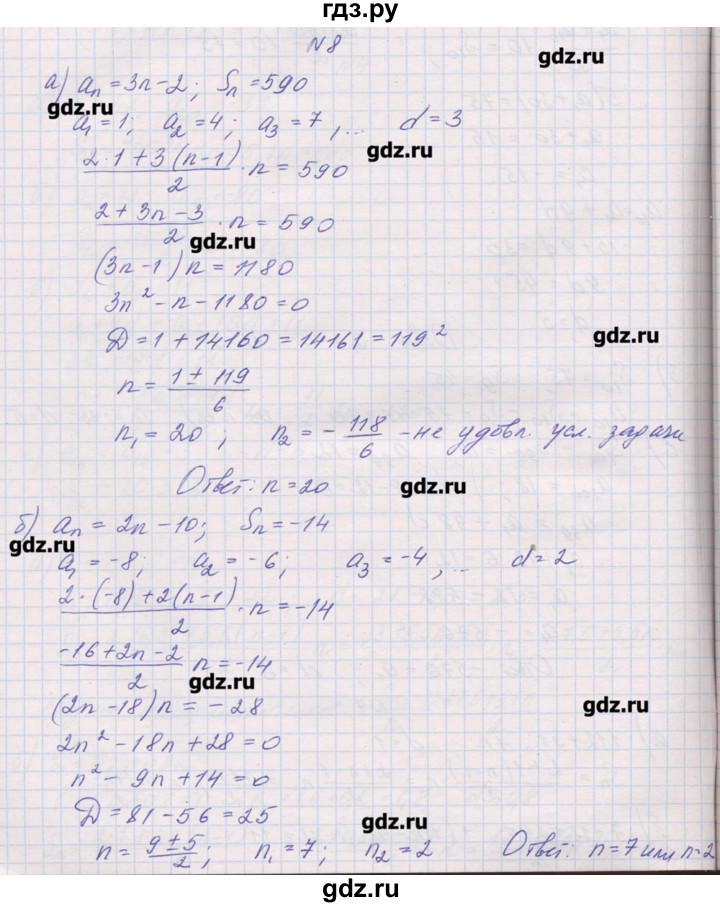 гдз.ру
№8
gdz.ru
а) aₙ = 3n-2; Sₙ = 590
gdz.ru
a₁ = 1; a₂ = 4; a₃ = 7, ... d = 3
gdz.ru
(2·1+3(n-1))/2 · n = 590
(2+3n-3)/2 · n = 590
gdz.ru
(3n-1)n = 1180
3n² - n - 1180 = 0
Д = 1 + 14160 = 14161 = 119²
gdz.ru
n = (1 ± 119)/6
n₁ = 20; n₂ = - 118/6 - не удовл. усл. задачи
Ответ: n = 20
gdz.ru
б) aₙ = 2n - 10; Sₙ = -14
gdz.ru
a₁ = -8; a₂ = -6; a₃ = -4, ... d = 2
(2·(-8)+2(n-1))/2 · n = -14
(-16+2n-2)/2 n = -14
gdz.ru
(2n-18)n = -28
gdz.ru
2n² - 18n + 28 = 0
n² - 9n + 14 = 0
Д = 81 - 56 = 25
gdz.ru
n = (9±5)/2; n₁ = 7; n₂ = 2 Ответ: n = 7 или n = 2
gdz.ru